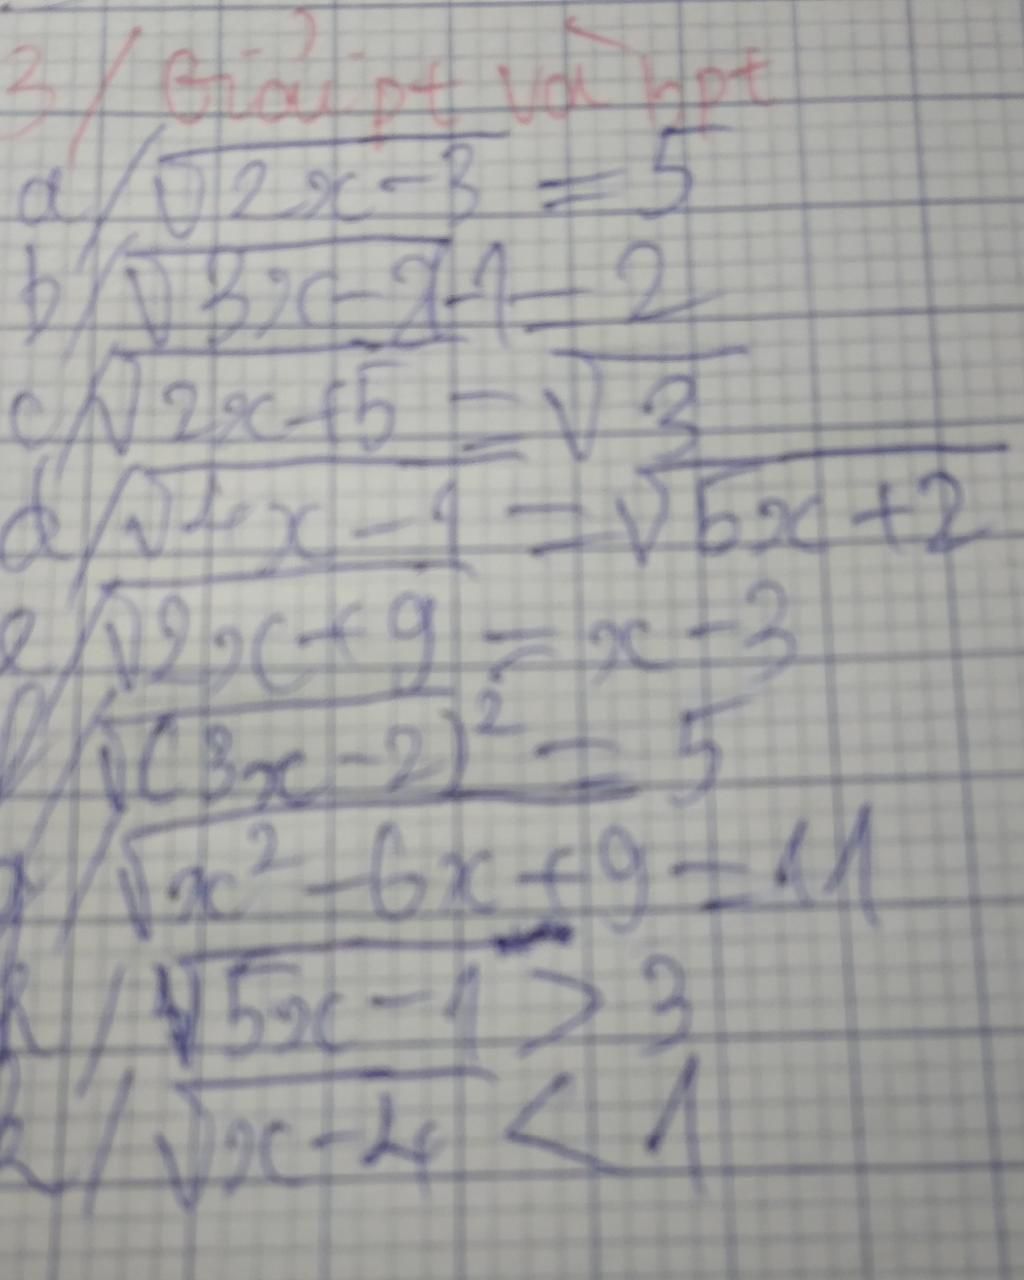 3/ Giải pt và hpt
a/ √(2x-3) = 5
b/ √(3x-2)-1 = 2
c/ √(2x+5) = √3
d/ √(4x-1) = √(5x+2)
e/ √(2x+9) = x-3
f/ √(3x-2)² = 5
g/ √(x²-6x+9) = 11
h/ √(5x-1) > 3
k/ √(x-4) < 1